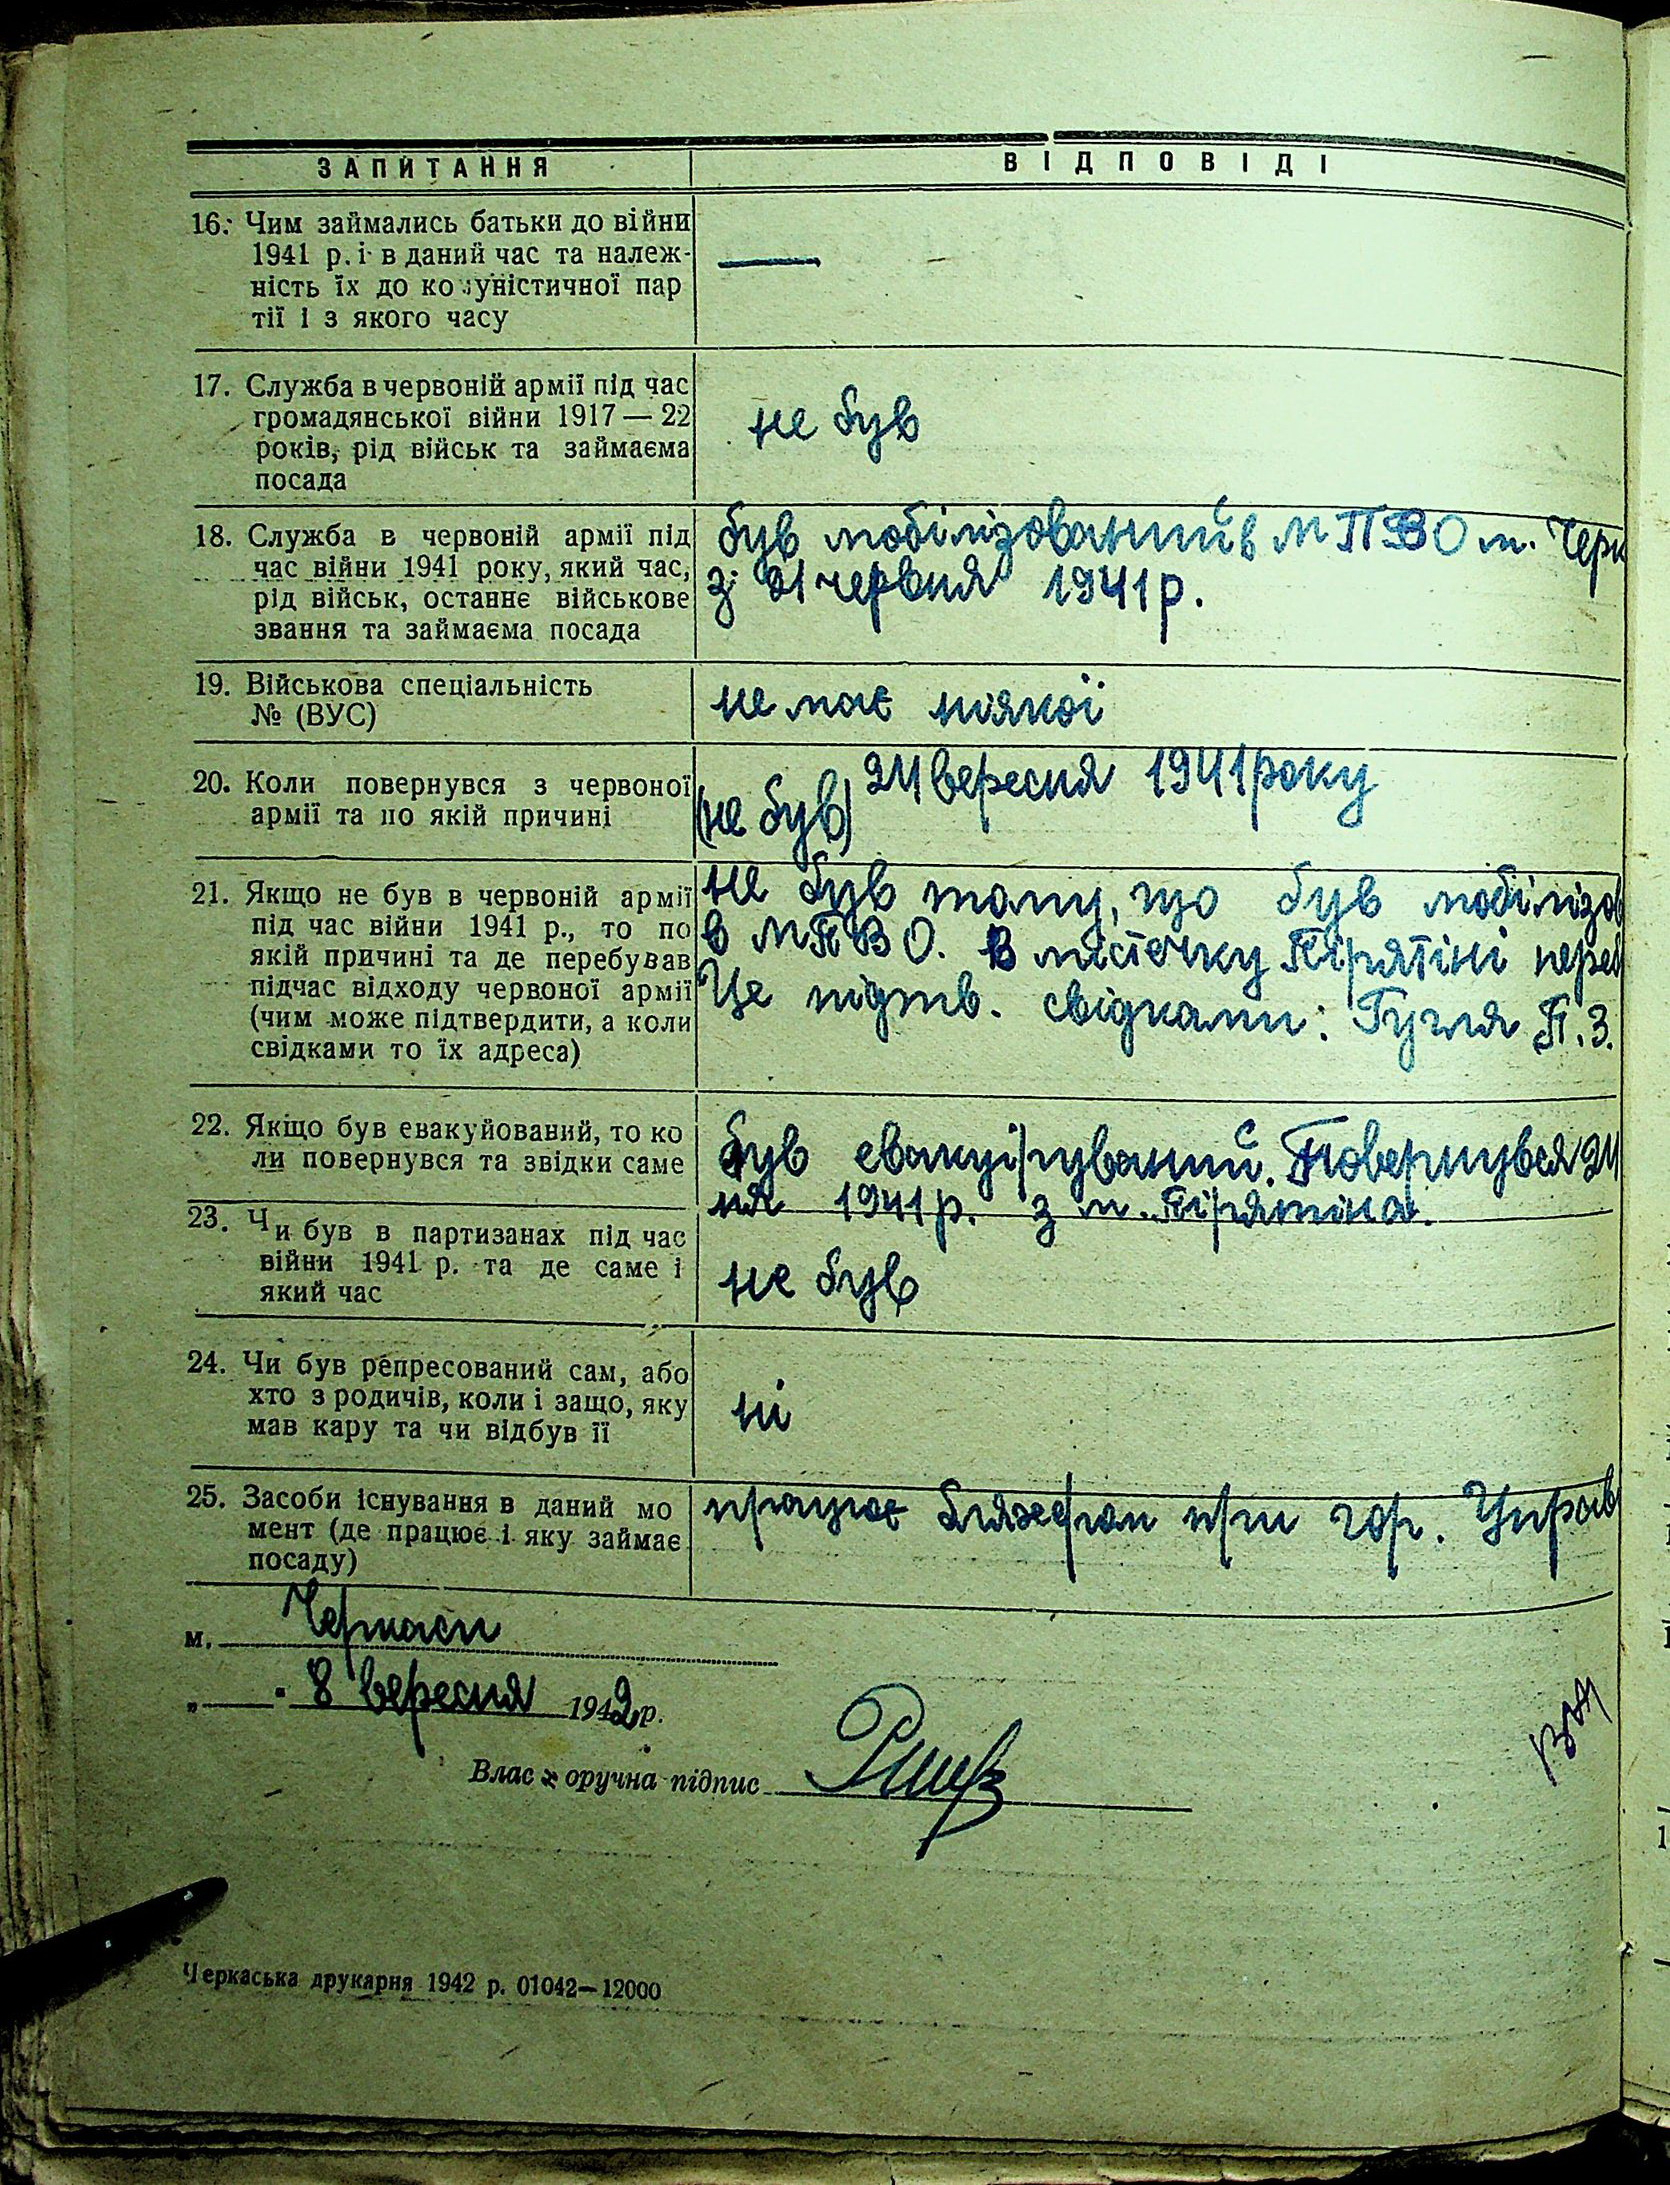 ЗАПИТАННЯ ВІДПОВІДІ
16. Чим займались батьки до війни
1941 р. і в даний час та належ-
ність їх до комуністичної пар
тії і з якого часу
—
17. Служба в червоній армії під час
громадянської війни 1917 — 22
років, рід військ та займаєма
посада
не був
18. Служба в червоній армії під
час війни 1941 року, який час,
рід військ, останнє військове
звання та займаєма посада
був мобілізований в МПВО м. Черк
зі 21 червня 1941 р.
19. Військова спеціальність
№ (ВУС)
не має ніякої
20. Коли повернувся з червоної
армії та по якій причині
24 вересня 1941 року
(не був)
21. Якщо не був в червоній армії
під час війни 1941 р., то по
якій причині та де перебував
підчас відходу червоної армії
(чим може підтвердити, а коли
свідками то їх адреса)
не був тому, що був мобілізов
в МПВО. В містечку Пірятіні переб
Це підтв. свідками: Гугля П.З.
22. Якщо був евакуйований, то ко
ли повернувся та звідки саме
був евакуіруваний. Повернувся 24
ня 1941 р. з м. Пірятіна.
23. Чи був в партизанах під час
війни 1941 р. та де саме і
який час
не був
24. Чи був репресований сам, або
хто з родичів, коли і защо, яку
мав кару та чи відбув її
ні
25. Засоби існування в даний мо
мент (де працює і яку займає
посаду)
працює бляхером при гор. Управ
м. Черкаси
„ " 8 вересня 1942 р.
Влас оручна підпис
Черкаська друкарня 1942 р. 01042—12000